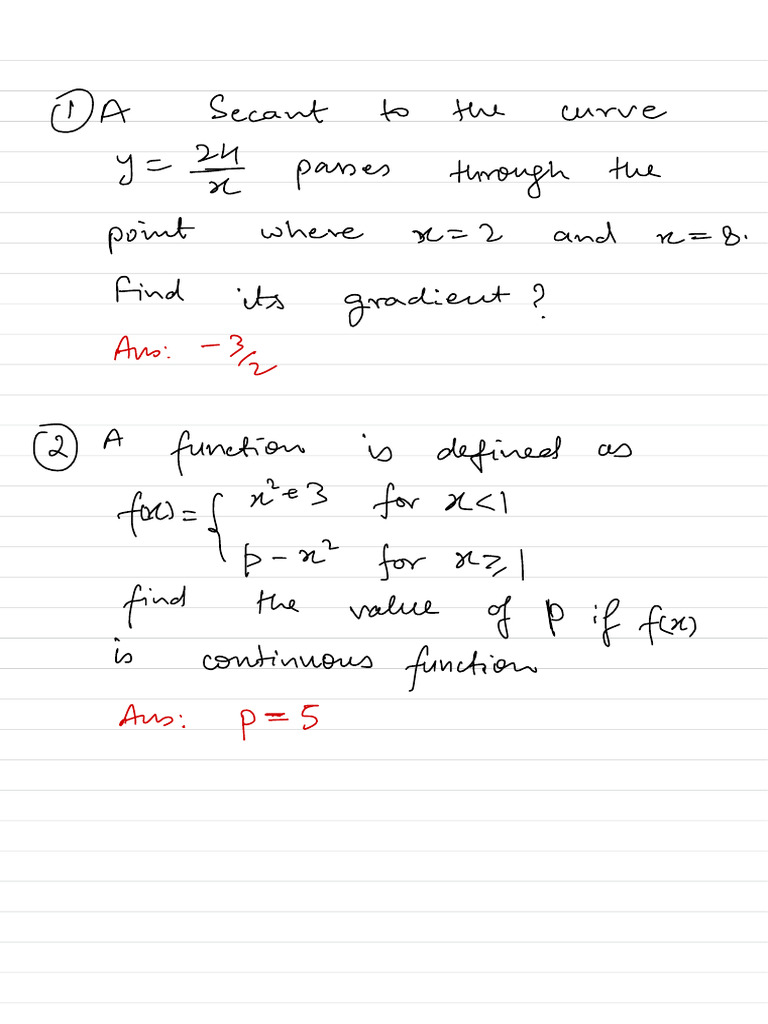 ① A Secant to the curve
y = 24/x passes through the
point where x=2 and x=8.
Find its gradient?
Ans: -3/2
② A function is defined as
f(x) = { x²+3 for x<1
p - x² for x≥1
find the value of p if f(x)
is continuous function
Ans: p=5